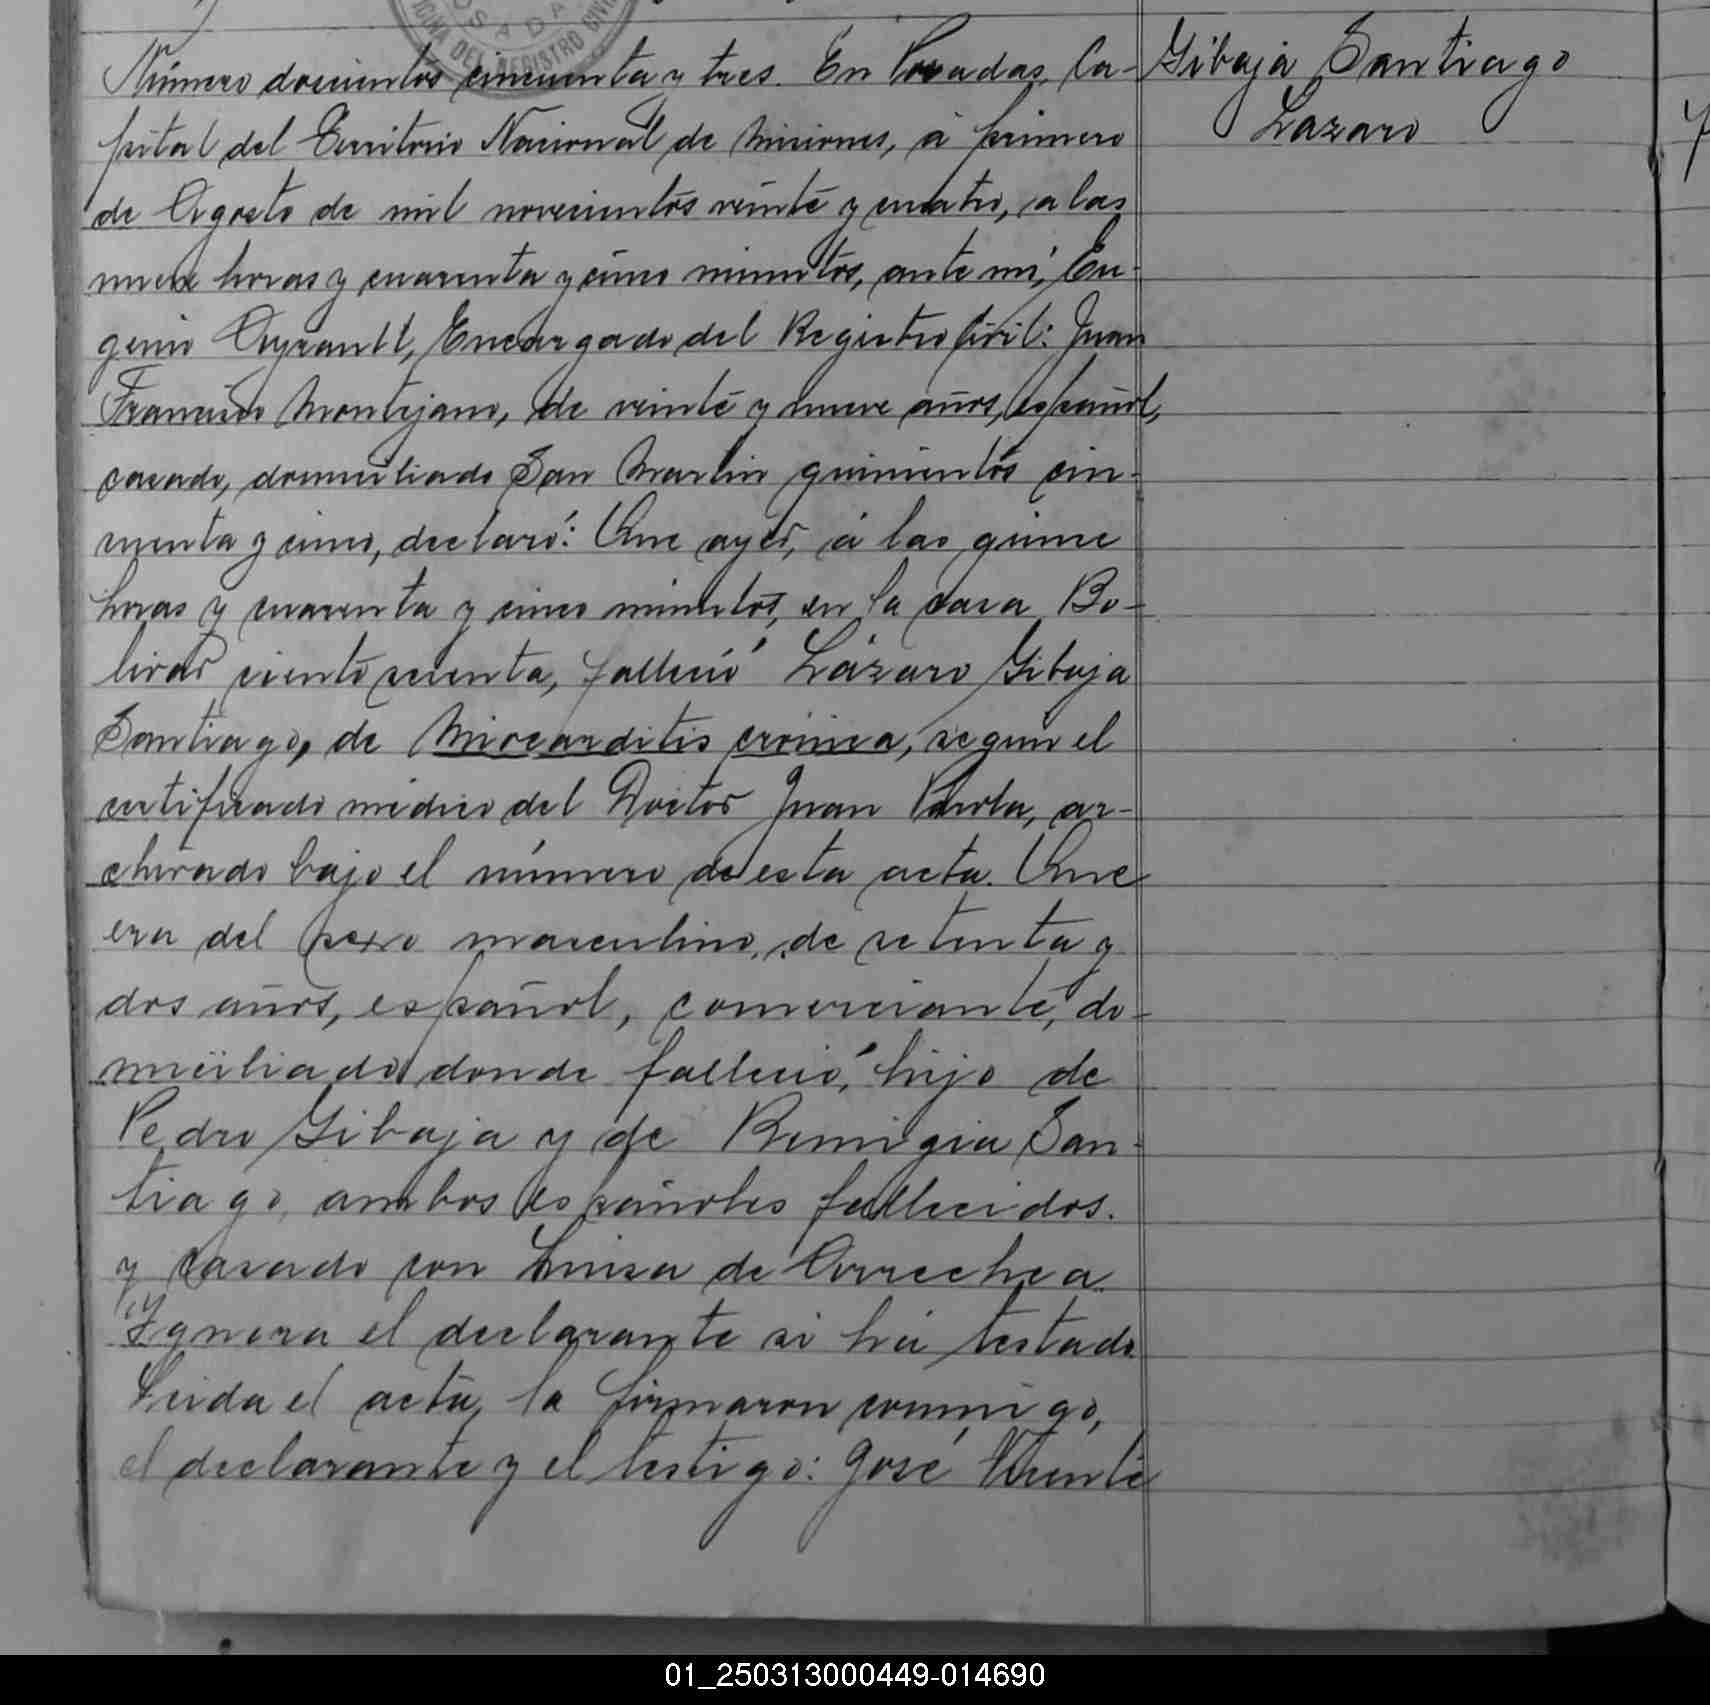 POSADAS
OFICINA DEL REGISTRO CIVIL
Número doscientos cincuenta y tres. En Posadas, Ca-
pital del Territorio Nacional de Misiones, á primero
de Agosto de mil novecientos veinte y cuatro, a las
nueve horas y cuarenta y cinco minutos, ante mí, Eu-
genio Ayrault, Encargado del Registro Civil: Juan
Francisco Montejano, de veinte y nueve años, español,
casado, domiciliado San Martin quinientos cin-
cuenta y cinco, declaró: Que ayer, á las quince
horas y cuarenta y cinco minutos, en la casa Bo-
livar ciento sesenta, falleció Lázaro Gibaja
Santiago, de Miocarditis crónica, segun el
certificado médico del Doctor Juan ar-
chivado bajo el número de esta acta. Que
era del sexo masculino, de setenta y
dos años, español, comerciante, do-
miciliado donde falleció, hijo de
Pedro Gibaja y de Remigia San-
tiago, ambos españoles fallecidos.
y casado con Luisa de Orrechea.
Ignora el declarante si há testado.
Leida el acta, la firmaron conmigo,
el declarante y el testigo: José Vicente
Gibaja Santiago
Lazaro
01_250313000449-014690